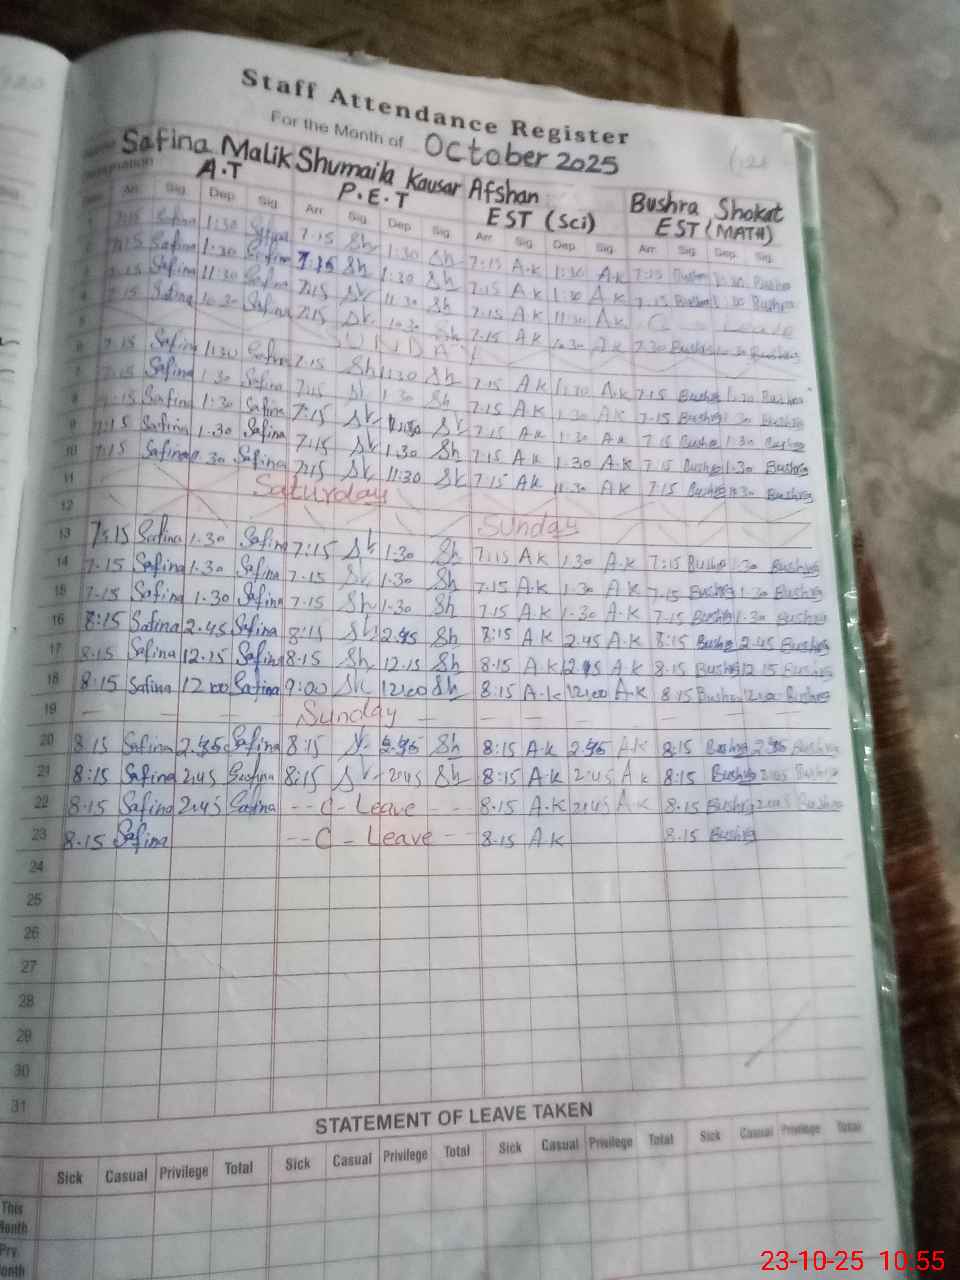 Staff Attendance Register
For the Month of October 2025
Safina Malik Shumaila Kausar Afshan Bushra Shokat
A.T P.E.T EST (Sci) EST (MATH)
Arr. Sig. Dep. Sig. Arr. Sig. Dep. Sig. Arr. Sig. Dep. Sig. Arr. Sig. Dep. Sig.
7:15 Safina 1:30 Safina 7.15 Sh 1:30 Sh 7:15 A.K 1:30 A.K 7:15 Bushra 1:30 Bushra
7:15 Safina 1.30 Safina 7:15 Sh 1:30 Sh 7.15 A.K 1:30 A.K 7.15 Bushra 1:30 Bushra
7.15 Safina 11:30 Safina 7:15 Sk 11.30 Sh 7.15 A.K 11:30 A.K C Leave
7.15 Safina Safina 7:15 Sk 1.30 Sh 7.15 A.K 1.30 A.K 7.30 Bushra Bushra
SUNDAY
6 7.15 Safina 1:30 Safina 7.15 Sh 1:30 Sh 7.15 A.K 1:30 A.K 7.15 Bushra 1:30 Bushra
7 7.15 Safina 1.30 Safina 7:15 Sk 1.30 Sh 7.15 A.K 1.30 A.K 7.15 Bushra 1.30 Bushra
8 7.15 Safina 1.30 Safina 7:15 Sk 1.30 Sk 7.15 A.K 1.30 A.K 7.15 Bushra 1.30 Bushra
9 7:15 Safina 1.30 Safina 7.15 Sk 1.30 Sh 7.15 A.K 1.30 A.K 7.15 Bushra 1.30 Bushra
10 7:15 Safina Safina 7:15 Sk 11:30 Sk 7.15 A.K 11.30 A.K 7.15 Bushra Bushra
11 Saturday
12 Sunday
13 7:15 Safina 1.30 Safina 7:15 Sk 1.30 Sh 7:15 A.K 1.30 A.K 7:15 Bushra 1.30 Bushra
14 7.15 Safina 1.30 Safina 7.15 Sk 1.30 Sh 7.15 A.K 1.30 A.K 7.15 Bushra 1.30 Bushra
15 7.15 Safina 1.30 Safina 7.15 Sh 1.30 Sh 7.15 A.K 1.30 A.K 7.15 Bushra 1.30 Bushra
16 8:15 Safina 2.45 Safina 8:15 Sk 2.45 Sh 8:15 A.K 2.45 A.K 8:15 Bushra 2.45 Bushra
17 8.15 Safina 12.15 Safina 8.15 Sh 12.15 Sh 8.15 A.K A.K 8.15 Bushra 12.15 Bushra
18 8.15 Safina 12:00 Safina 9:00 Sk 12:00 Sh 8:15 A.K 12:00 A.K 8.15 Bushra 12:00 Bushra
19 — — — — Sunday — — — — — — — —
20 8.15 Safina 2.45 Safina 8:15 Sk 2.45 Sh 8:15 A.K 2.45 A.K 8:15 Bushra 2.45 Bushra
21 8:15 Safina 2:45 Safina 8:15 Sk 2:45 Sh 8:15 A.K 2:45 A.K 8.15 Bushra 2:45 Bushra
22 8.15 Safina 2:45 Safina -- C - Leave -- 8.15 A.K 2:45 A.K 8.15 Bushra 2:45 Bushra
23 8.15 Safina -- C - Leave -- 8.15 A.K 8.15 Bushra
24
25
26
27
28
29
30
31
STATEMENT OF LEAVE TAKEN
Sick Casual Privilege Total Sick Casual Privilege Total Sick Casual Privilege Total Sick Casual Privilege Total
This
Month
Prv.
Month
23-10-25 10:55